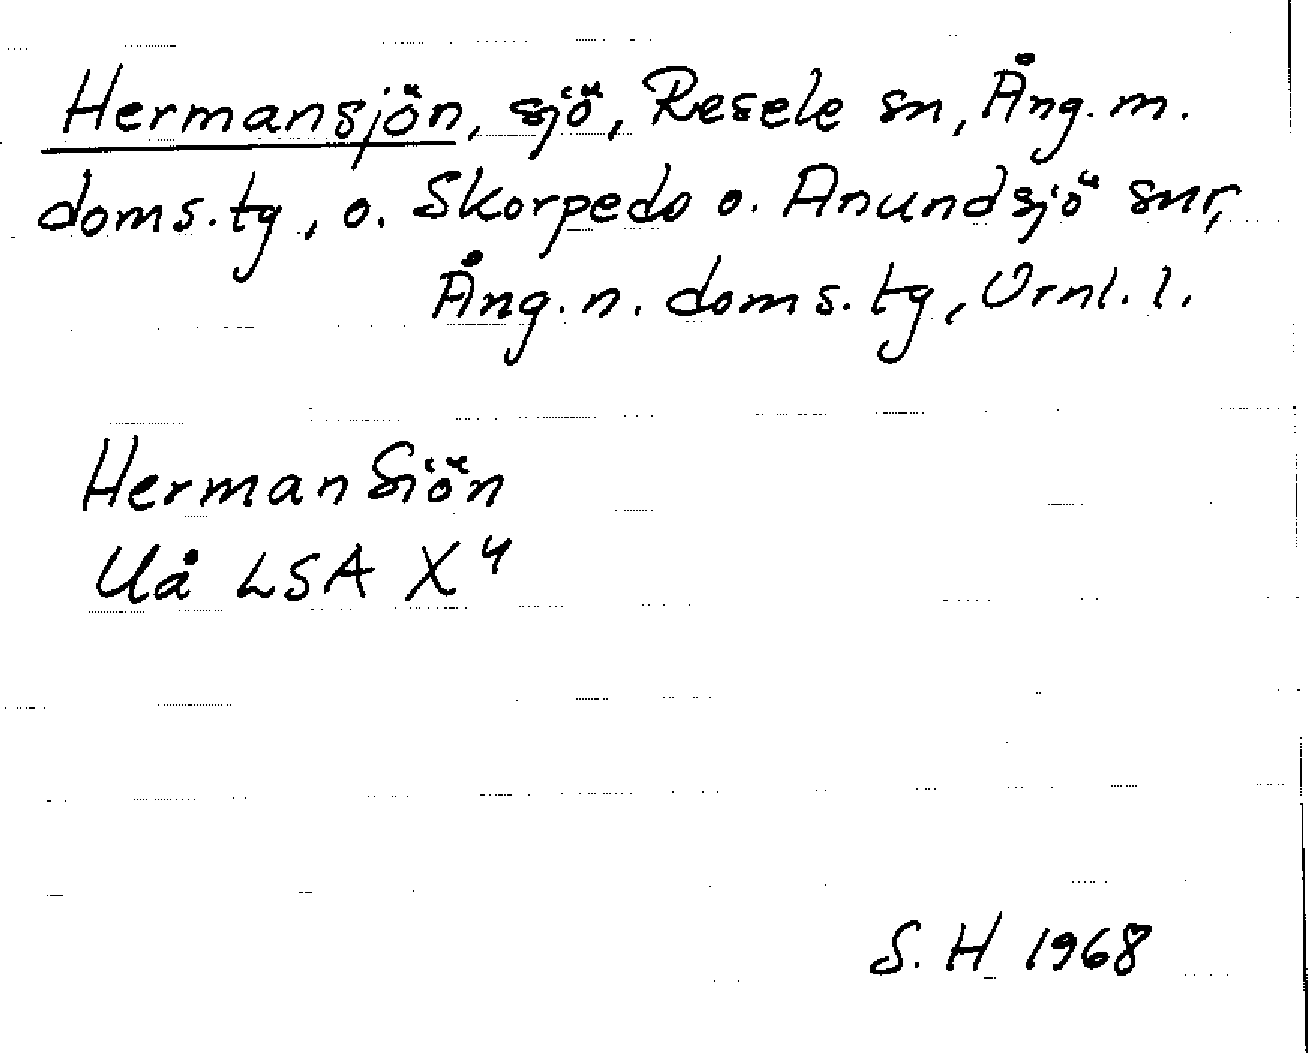 Hermansjön, sjö, Resele sn, Ång. m.
doms.tg, o. Skorpedo o. Anundsjö snr,
Ång. n. doms. tg, Vrnl. l.
Herman Siön
Uå LSA X4
S. H 1968